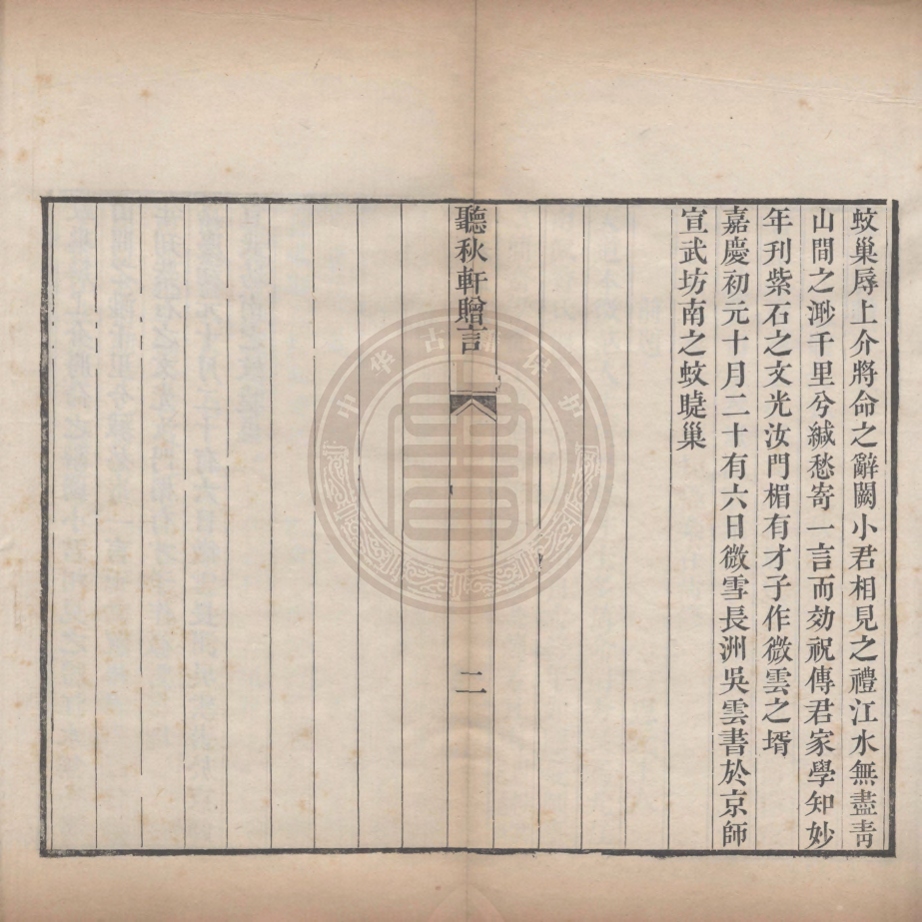 蚊巢辱上介將命之辭闕小君相見之禮江水無盡靑
山間之渺千里兮緘愁寄一言而効祝傳君家學知妙
年刋紫石之文光汝門楣有才子作微雲之壻
嘉慶初元十月二十有六日微雪長洲吳雲書於京師
宣武坊南之蚊睫巢
聽秋軒贈言
二
中华古籍保护